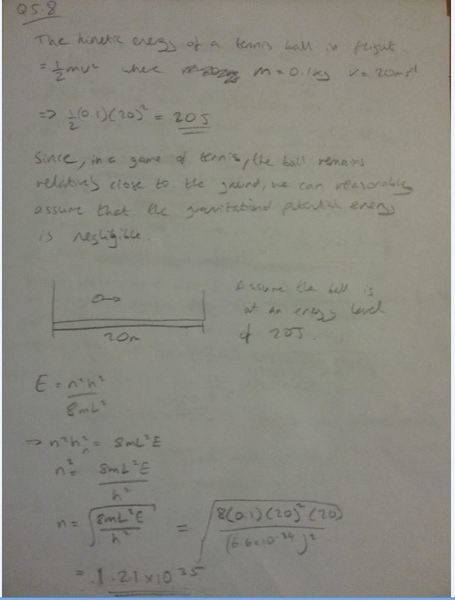 Q5.8
The kinetic energy of a tennis ball in flight
= ½mv² where m = 0.1kg v = 20ms⁻¹
=> ½(0.1)(20)² = 20J
Since, in a game of tennis, the ball remains
relatively close to the ground, we can reasonably
assume that the gravitational potential energy
is negligible.
Assume the ball is
at an energy level
of 20J.
20m
E = n²h²
8mL²
=> n²h² = 8mL²E
n² = 8mL²E
h²
n = √8mL²E
h²
= √8(0.1)(20)²(20)
(6.6×10⁻³⁴)²
= 1.21×10³⁵